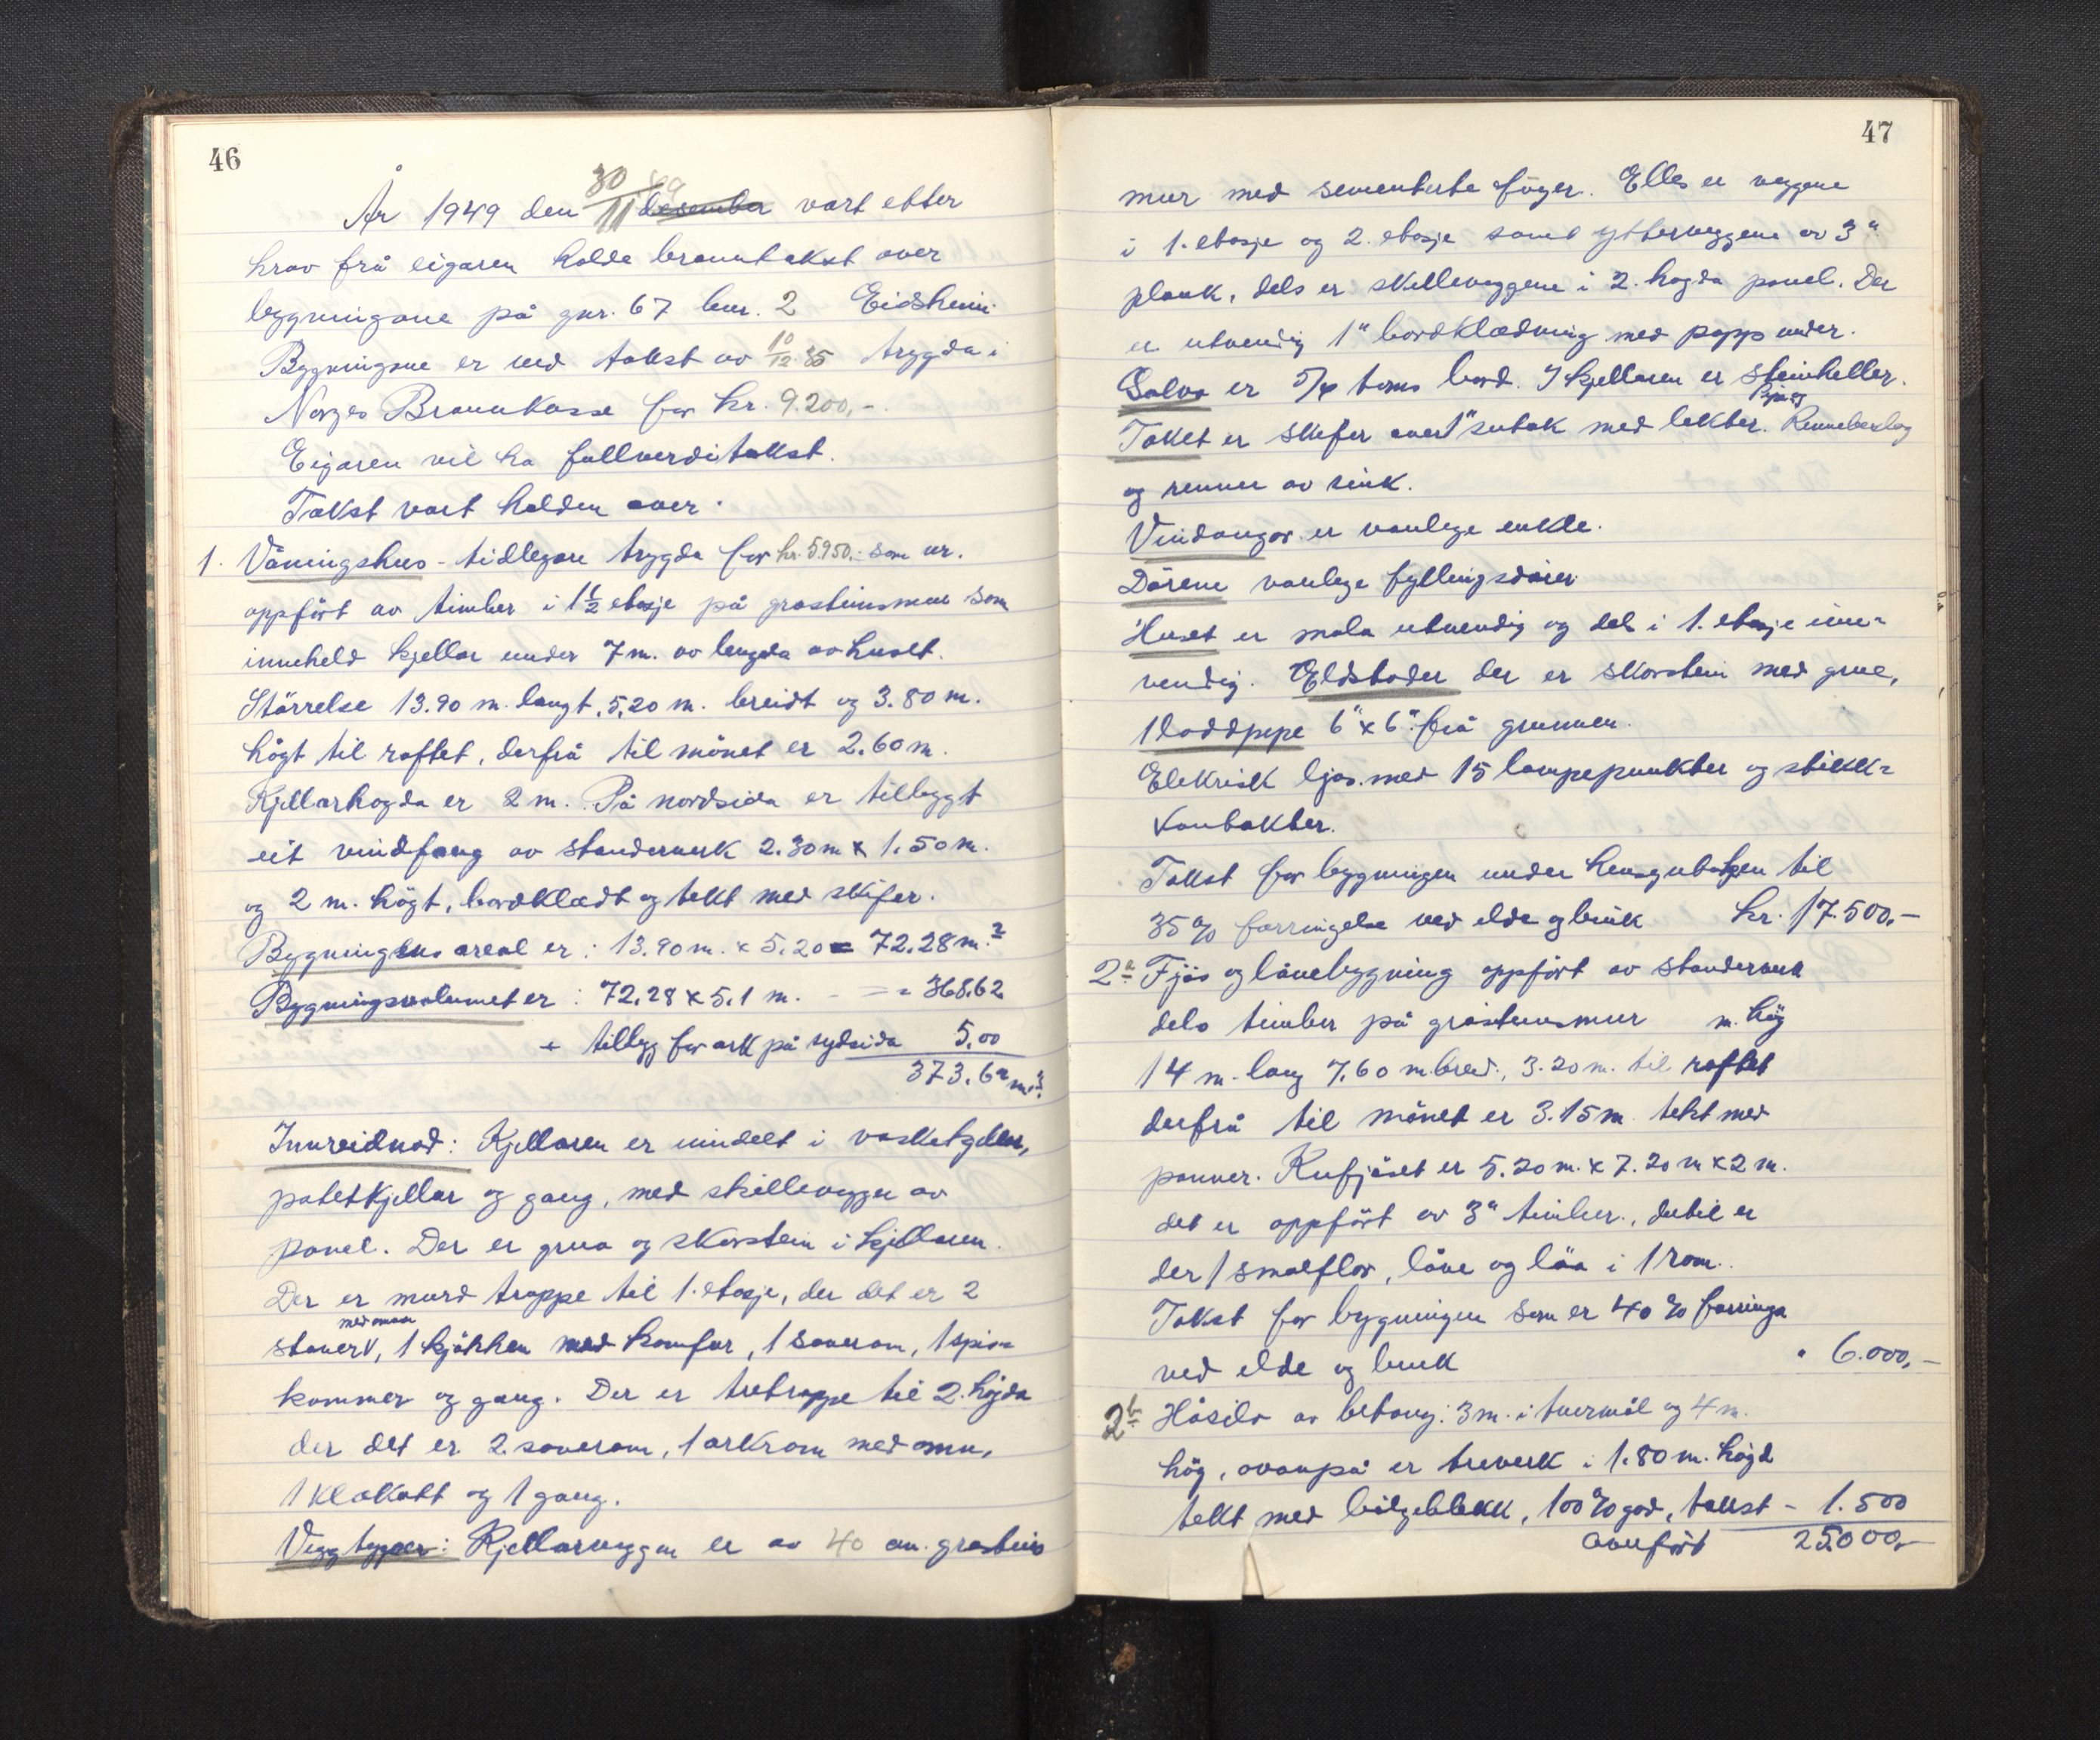 46
År 1949 den 30/11 desember vart etter
krav frå eigaren halde branntakst over
bygningane på gnr. 67 bnr. 2 Eidsheim
Bygningane er ved takst av 10/12 35 trygda i
Norges Brannkasse for kr. 9.200,-.
Eigaren vil ha fullverditakst.
Takst vart halden over:
1. Våningshus - tidlegare trygda for kr. 5.950,- som er.
oppfört av timber i 1½ etasje på grasteinsmur som
inneheld kjellar under 7 m. av lengda av huset.
Störrelse 13.90 m. langt, 5,20 m. breidt og 3.80 m.
högt til raftet, derfrå til mönet er 2.60 m.
Kjellarhögda er 2 m. På nordsida er tilbygt
eit vindfang av standerverk 2.30 m x 1.50 m.
og 2 m. högt, bordklædt og tekt med skifer.
Bygningens areal er: 13.90 m. x 5.20 = 72.28 m.²
Bygningsvolumet er: 72.28 x 5.1 m. - = 368.62
+ tillegg for ark på sydsida 5,00
373.62 m.³
Innreidnad: Kjellaren er inndelt i vaskekjellar,
potetkjellar og gang, med skillevegger av
panel. Der er grua og skorstein i kjellaren.
Der er murd trappe til 1. etasje, der det er 2
med omnar
stover, 1 kjökken med komfur, 1 soverom, 1 spis-
kammer og gang. Der er tretrappe til 2. högda
der det er 2 soverom, 1 arkrom med omn,
1 klekott og 1 gang.
Veggtyper: Kjellarveggen er av 40 cm. grasteins
47
mur med sementerte fuger. Elles er veggene
i 1. etasje og 2. etasje samt ytterveggene av 3"
plank, dels er skilleveggene i 2. högda panel. Der
er utvendig 1" bordklædning med papp under.
Golva er 5/4 toms bord. I kjellaren er steinheller.
Taket er skifer over 1" sutak med lekter. Rennebeslag
og renner av sink.
Vindaugo er vanlege enkle.
Dörene vanlege fyllingsdörer
Huset er mala utvendig og dels i 1. etasje inn-
vendig. Eldstader der er skorstein med grue,
1 loddpipe 6" x 6" frå grunnen.
Elektrisk ljos med 15 lampepunkter og stikk-
kontakter.
Takst for bygningen under hensyntagen til
35% forringelse ved elde og bruk kr. 17.500,-
2a Fjös og lånebygning oppfört av standerverk
dels timber på grasteinsmur m. hög
14 m. lang 7,60 m. breid, 3.20 m. til raftet
derfrå til mönet er 3.15 m. tekt med
panner. Kufjöset er 5.20 m. x 7.20 m x 2 m.
det er oppfört av 3" timber, dertil er
der 1 smalflor, låve og löa i 1 rom.
Takst for bygningen som er 40% forringa
ved elde og bruk " 6.000,-
2b Hösilo av betong: 3 m. i tvermål og 4 m.
hög, ovanpå er treverk i 1.80 m. högd
tekt med bölgeblekk, 100% god, takst - 1.500
Overfört 25.000,-